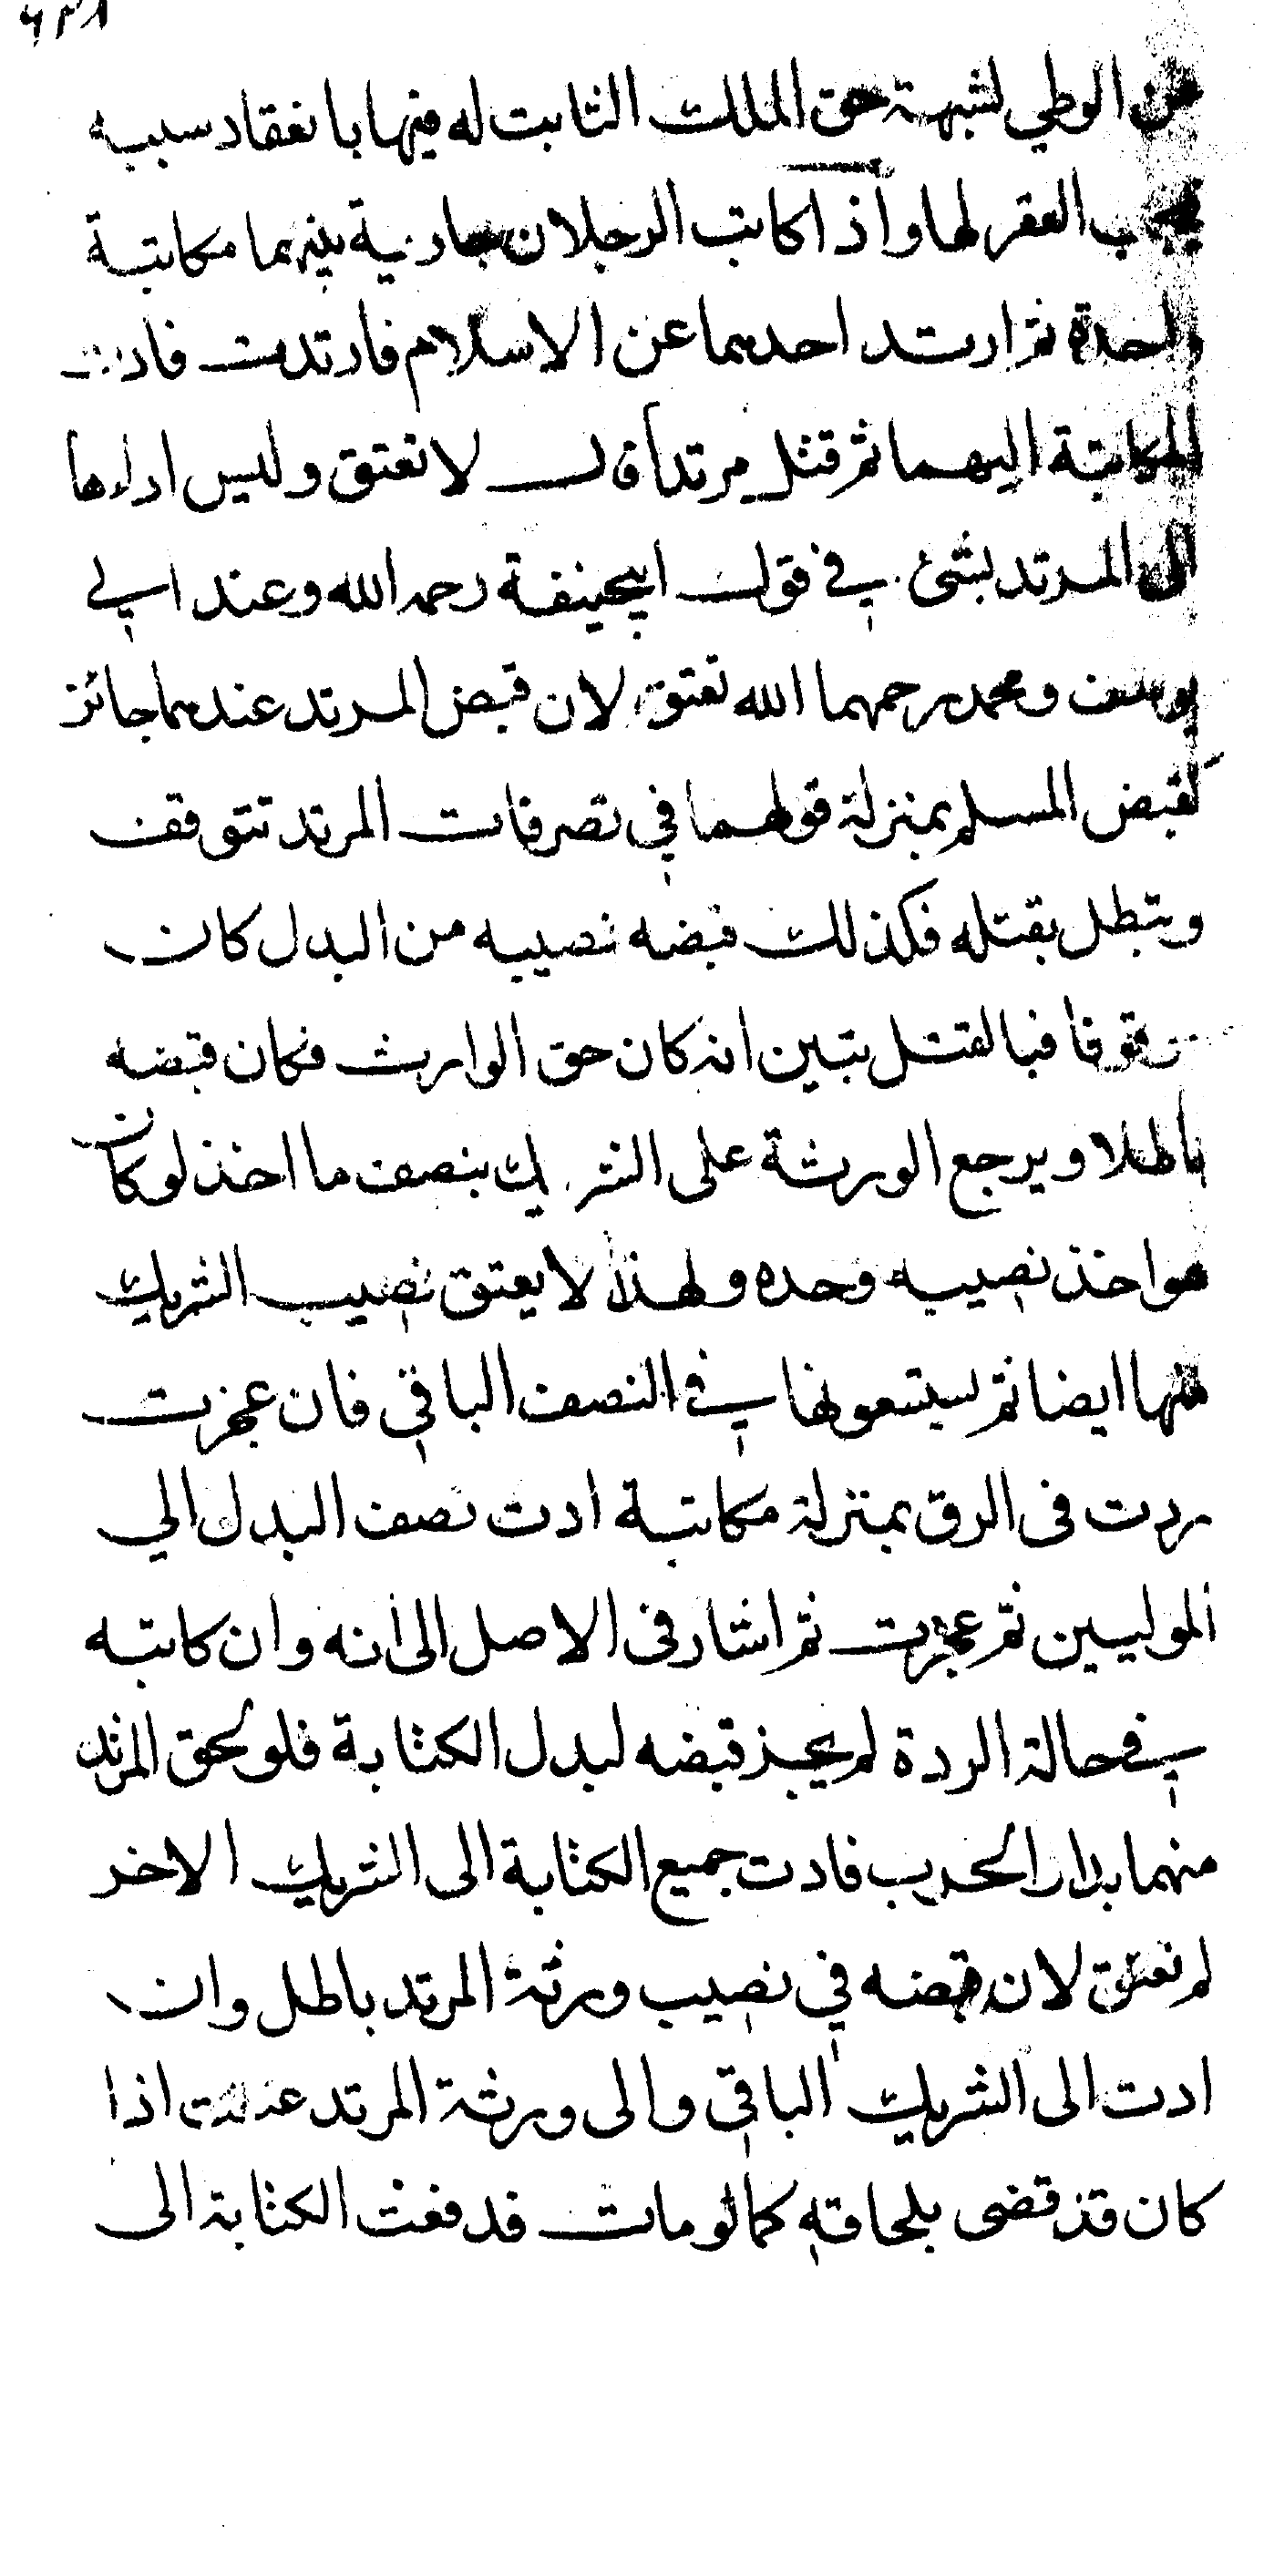 ٤٣٨
عن الوطي لشبهة حق الملك الثابت له فيها بانعقاد سببه
فيجب العقر لها واذا كاتب الرجلان جارية بينهما مكاتبة
واحدة ثم ارتد احدهما عن الاسلام فارتدت فادت
المكاتبة اليهما ثم قتل مرتدا قال لا تعتق وليس اداءها
الى المرتد بشئ في قول ابيحنيفة رحمه الله وعند ابي
يوسف ومحمد رحمهما الله تعتق لان قبض المرتد عندهما جائز
كقبض المسلم بمنزلة قولهما في تصرفات المرتد تتوقف
وتبطل بقتله فكذلك قبضه نصيبه من البدل كان
موقوفا فبالقتل تبين انه كان حق الوارث فكان قبضه
باطلا ويرجع الورثة على الشريك بنصف ما اخذ لو كان
هو اخذ نصيبه وحده ولهذا لا يعتق نصيب الشريك
منها ايضا ثم يستسعونها في النصف الباقي فان عجزت
ردت فى الرق بمنزلة مكاتبة ادت نصف البدل الي
الموليين ثم عجزت ثم اشار فى الاصل الى انه وان كاتبه
في حالة الردة لم يجز قبضه لبدل الكتابة فلو لحق المرتد
منهما بدار الحرب فادت جميع الكتابة الى الشريك الاخر
لم تعتق لان قبضه في نصيب ورثة المرتد باطل وان
ادت الى الشريك الباقي والى ورثة المرتد عتقت اذا
كان قد قضى بلحاقه كما لو مات فدفعت الكتابة الى